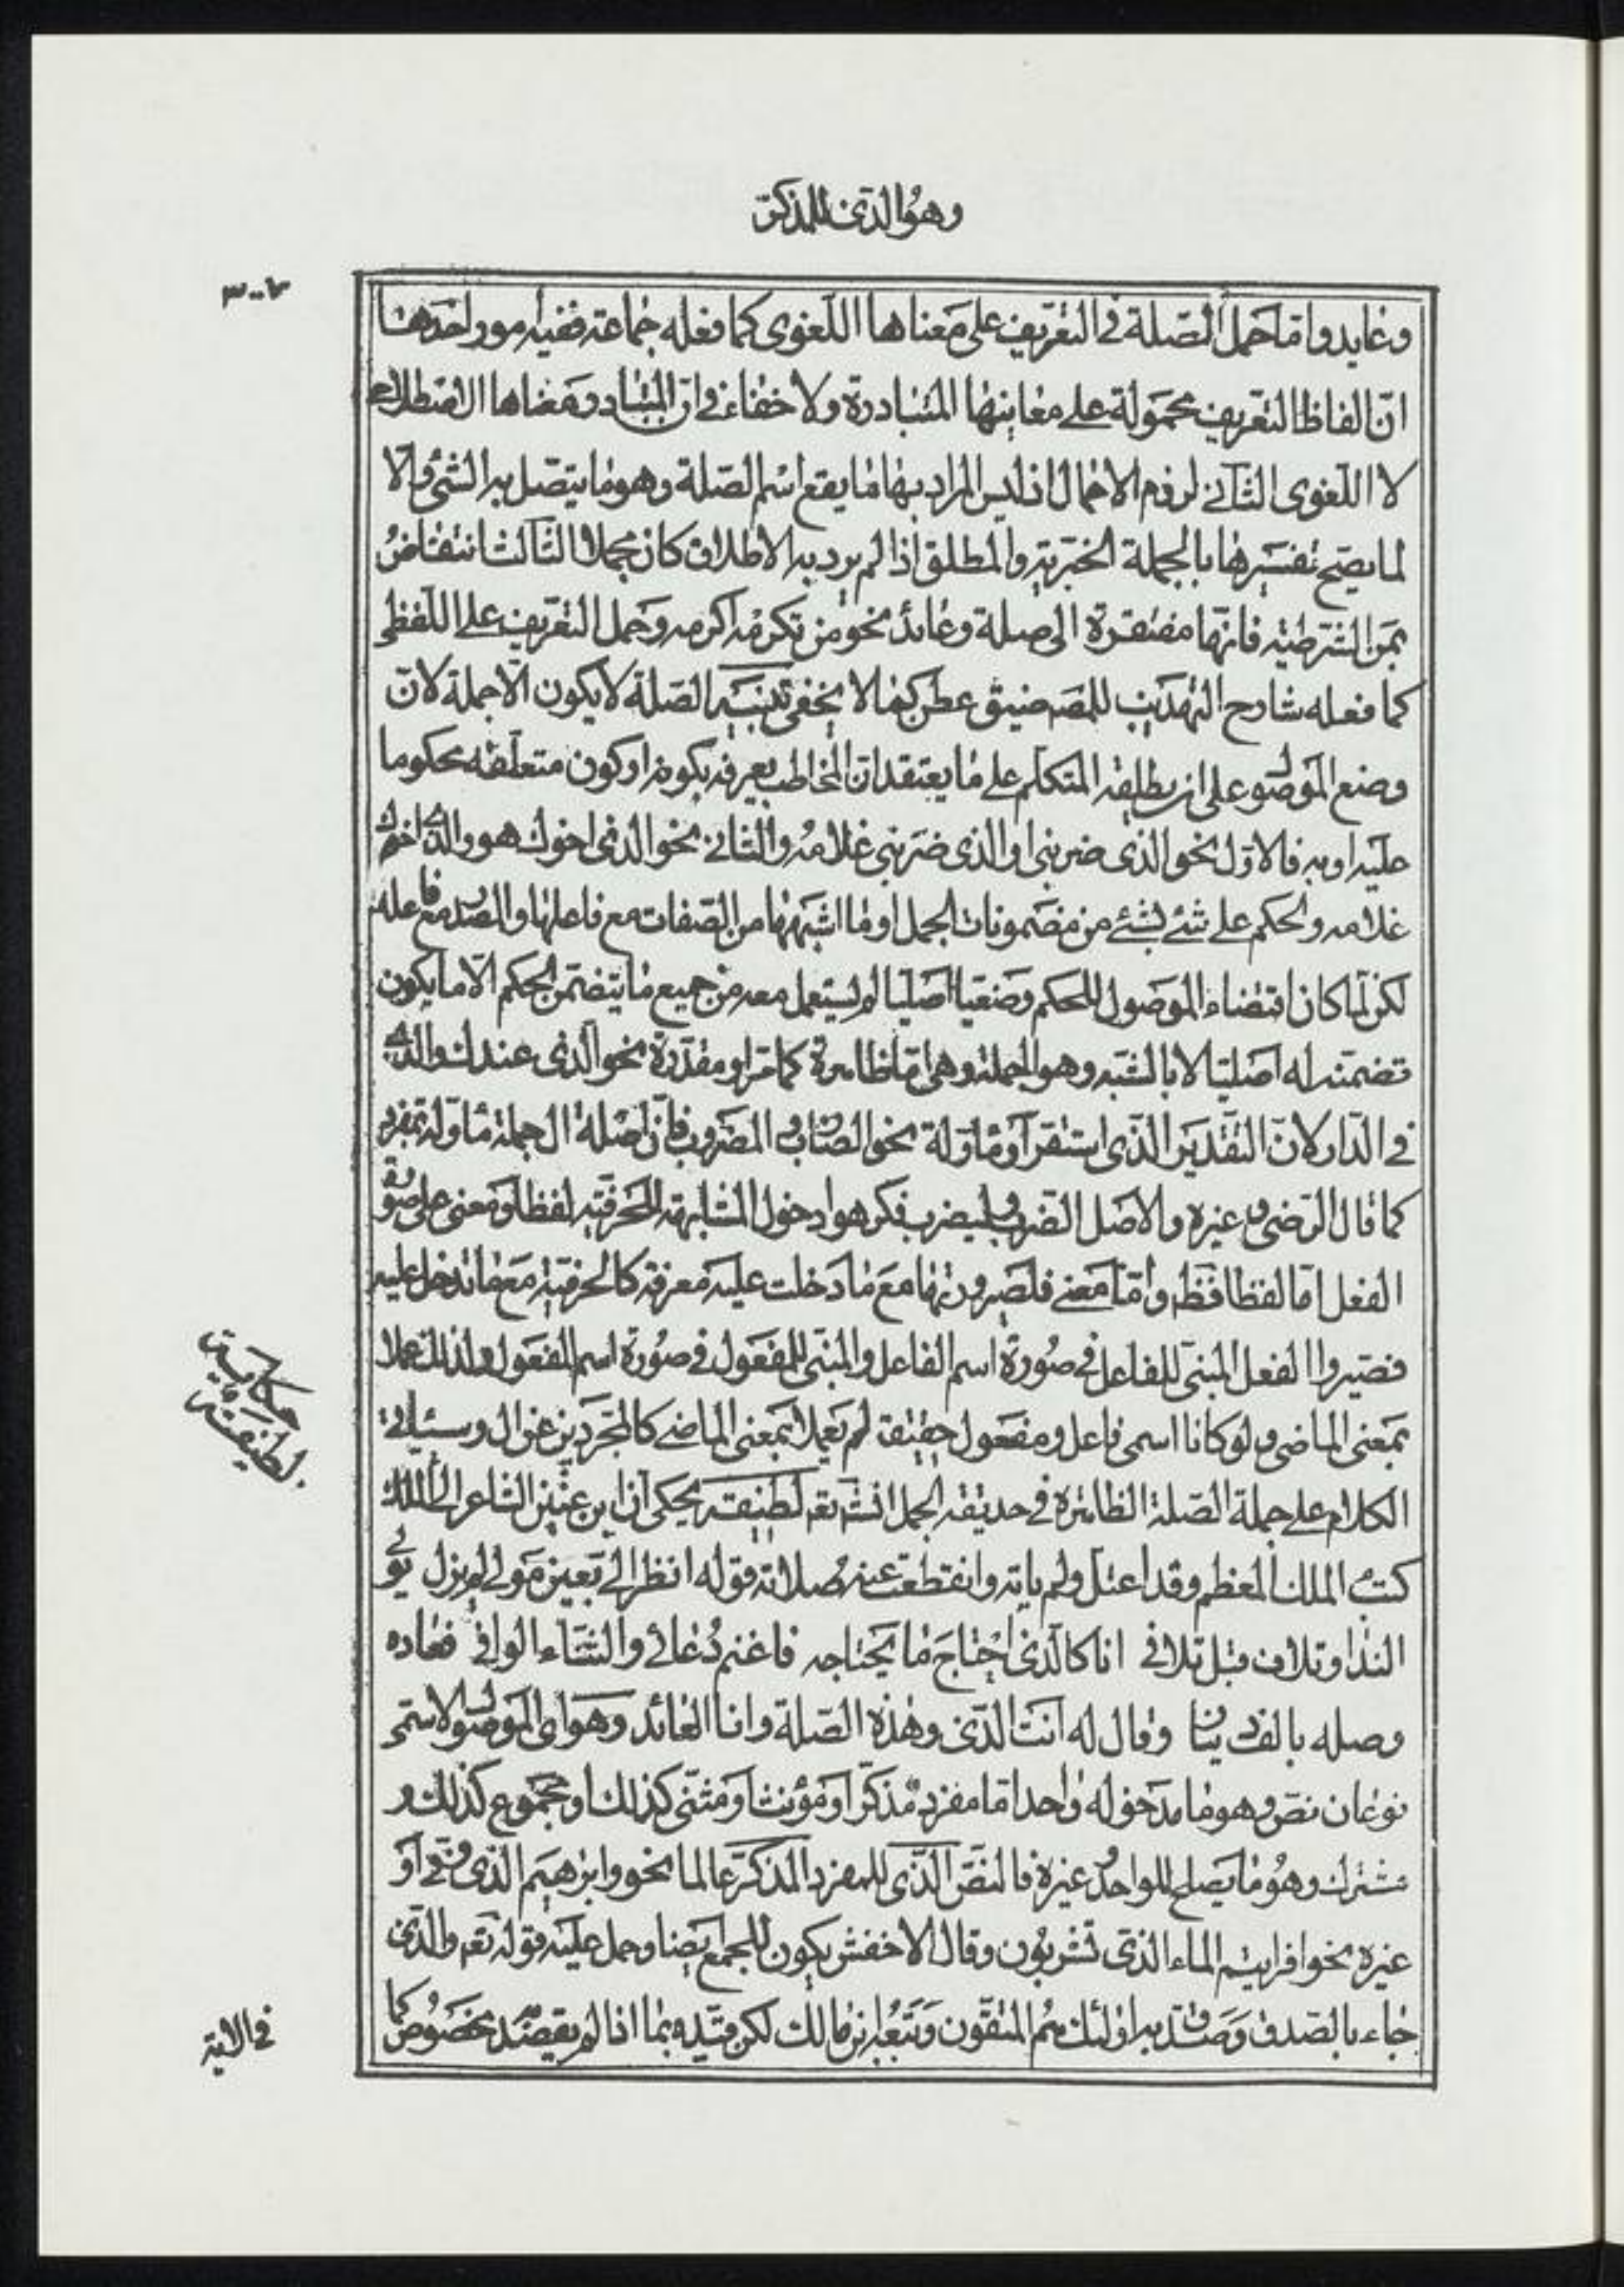 وهو الذي للمذكر
٣٠٠
وعايد واما حمل الصلة في التعريف على معناها اللغوى كما فعله جماعة ففيه امور احدها
ان الفاظ التعريف محمولة على معاينها المتبادرة ولا خفاء في ان المتبادر معناها الاصطلاحي
لا اللغوى الثاني لزوم الاجمال اذ ليس المراد بها ما يقع اسم الصلة وهو ما يتصل به الشئ والا
لما يصح تفسيرها بالجملة الخبرية والمطلق اذا لم يرد به الاطلاق كان مجملا الثالث انتقاض
بمن الشرطية فانها مفتقرة الى صلة وعائد نحو من تكرمه اكرمه وحمل التعريف على اللفظى
كما فعله شارح التهذيب للمصـ ضيق عطن كما لا يخفى تنبيه الصلة لا يكون الا جملة لان
وضع الموصول على ان يطلقه المتكلم على ما يعتقد ان المخاطب يعرفه بكونه او كون متعلقه محكوما
عليه او به فالاول نحو الذى ضربنى او الذى ضربنى غلامه والثاني نحو الذى اخوك هو والذي اخوك
غلامه والحكم على شئ بشئ من مضمونات الجمل او ما اشبهها من الصفات مع فاعلها والمصدر مع فاعله
لكن لما كان اقتضاء الموصول للحكم وضعيا اصليا لم يستعمل معه من جميع ما يتضمن الحكم الا ما يكون
تضمنه له اصليا لا بالشبه وهو الجملة وهي اما ظاهرة كما مر او مقدرة نحو الذي عندك والذي
في الدار لان التقدير الذي استقر او ماولة نحو الضارب والمضروب فان صلة ال جملة ماولة بمفرد
كما قال الرضى وغيره والاصل الضرب وليضرب فكرهوا دخول المشابهة للحرفية لفظا ومعنى على صورة
الفعل اما لفظا فظـ واما معنى فلصيرورتها مع ما دخلت عليه معرفة كالحرفية مع ما تدخل عليه
فصيروا الفعل المبنى للفاعل في صورة اسم الفاعل والمبنى للمفعول في صورة اسم المفعول ولذلك عملا
بمعنى الماضى ولو كانا اسمى فاعل ومفعول حقيقة لم يعملا بمعنى الماضي كالمجردين عن ال وسيأتي
الكلام على جملة الصلة الظاهرة في حديقه الجمل انشـ تعـ لطيفة يحكى ان ابن عنين الشاعر الى الملك
كتب الملك المعظم وقد اعتل ولم ياته وانقطعت عنه صلاته قوله انظر الى بعين مولى لم يزل يولى
الندا وتلاف قبل تلافى انا كالذى احتاج ما يحتاجه فاغنم دعائي والثناء الوافى فعاده
وصله بالف دينار وقال له انت الذي وهذه الصلة وانا العائد وهو اى الموصول الاسمى
نوعان نص وهو ما مدخوله واحد اما مفرد مذكر او مؤنث او مثنى كذلك او مجموع كذلك و
مشترك وهو ما يصلح للواحد وغيره فالنص الذي للمفرد المذكر عالما نحو وابرهيم الذى وفى او
غيره نحو افرايتم الماء الذي تشربون وقال الاخفش يكون للجمع ايضا وحمل عليه قوله تعـ والذي
جاء بالصدق وصدق به اولئك هم المتقون وتبعه ابن مالك لكن قيده بما اذا لم يقصد مخصوص كما
حكاية
لطيفة
في الاية